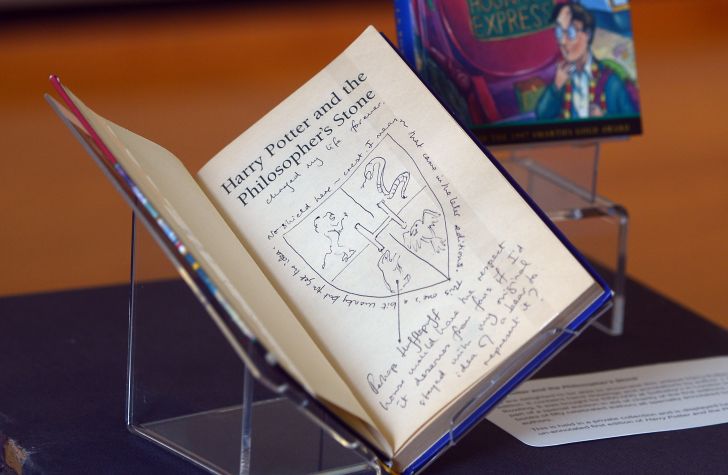 EXPRESS
1997 SMARTIES GOLD AWARD
Harry Potter and the
Philosopher's Stone
changed my life forever.
No shield here – crest I mean,
that came in the later editions.
one is a bit wonky but you get the idea.
Perhaps Hufflepuff
house would have the respect
it deserves from fans if I'd
stayed with my original
idea of a bear to
represent it?
Potter and the Philosopher's Stone
This is held in a private collection and is displayed
an annotated first edition of Harry Potter and the